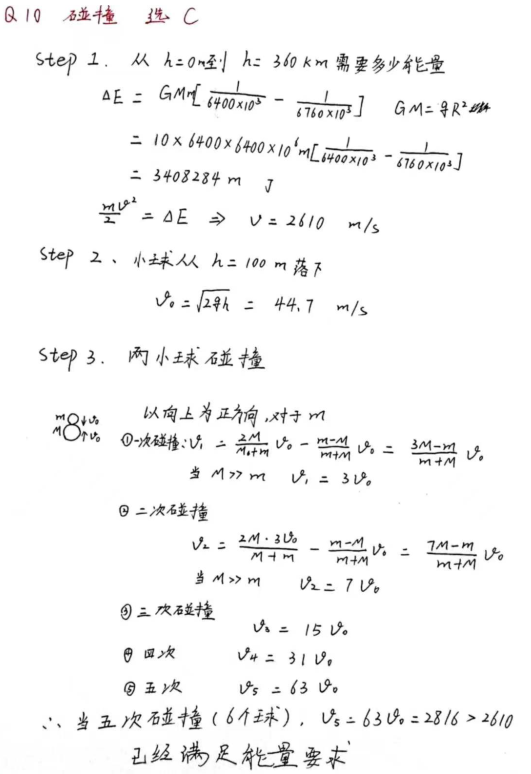 Q10 碰撞 选 C
Step 1. 从 h=0m到 h=360km 需要多少能量
ΔE = GMm[1/6400×10³ - 1/6760×10³] GM=gR²
= 10×6400×6400×10⁶m[1/6400×10³ - 1/6760×10³]
= 3408284 m J
mv²/2 = ΔE ⇒ v=2610 m/s
Step 2、小球从 h=100m 落下
v₀=√2gh = 44.7 m/s
Step 3. 两小球碰撞
以向上为正方向,对于m
m ↓v₀
M ↑v₀
①一次碰撞:v₁ = 2M/M+m v₀ - m-M/m+M v₀ = 3M-m/m+M v₀
当 M>>m v₁ = 3v₀
② 二次碰撞
v₂ = 2M·3v₀/M+m - m-M/m+M v₀ = 7M-m/m+M v₀
当 M>>m v₂=7v₀
③三次碰撞
v₃ = 15v₀
④ 四次 v₄ = 31v₀
⑤ 五次 v₅ = 63v₀
∴ 当五次碰撞(6个球), v₅=63v₀=2816>2610
已经满足能量要求